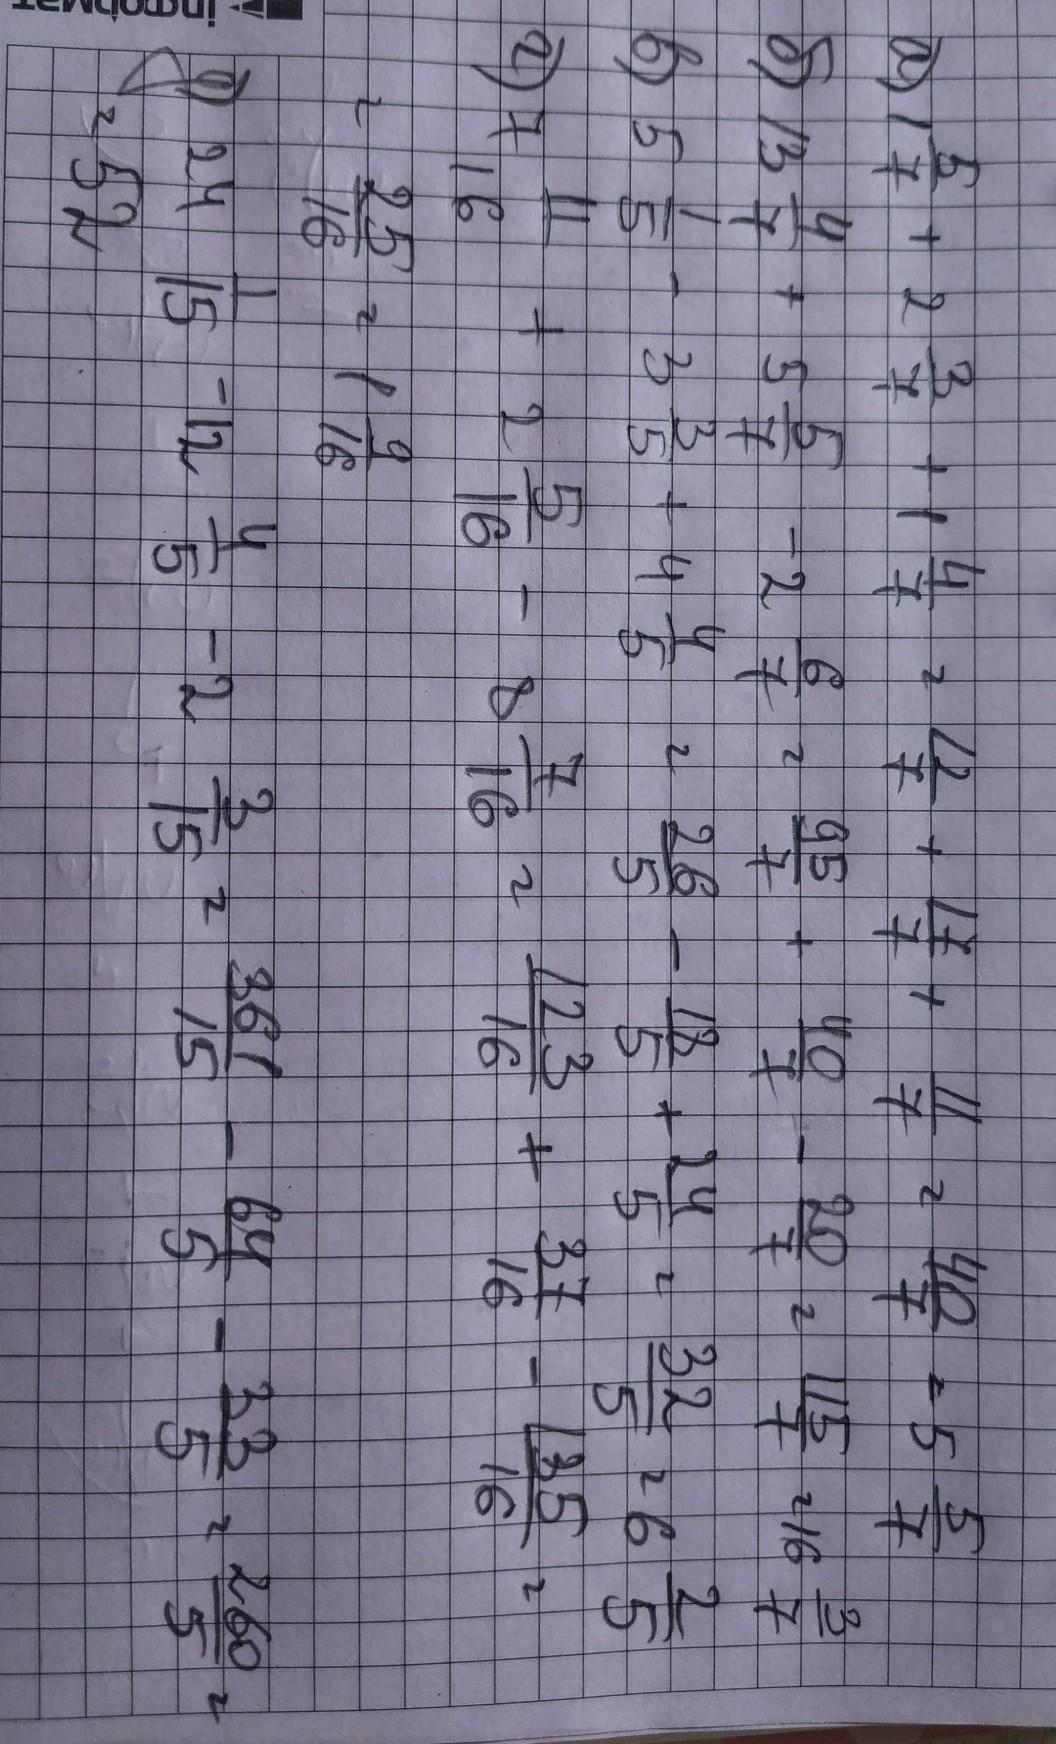 інформат
а) 1 5/7 + 2 3/7 + 1 4/7 = 12/7 + 17/7 + 11/7 = 40/7 = 5 5/7
б) 13 4/7 + 5 5/7 - 2 6/7 = 95/7 + 40/7 - 20/7 = 115/7 = 16 3/7
в) 5 1/5 - 3 3/5 + 4 4/5 = 26/5 - 18/5 + 24/5 = 32/5 = 6 2/5
г) 7 11/16 + 2 5/16 - 8 7/16 = 123/16 + 37/16 - 135/16 =
= 25/16 = 1 9/16
24 1/15 - 12 4/5 - 2 3/15 = 361/15 - 64/5 - 33/5 = 260/5 =
= 52